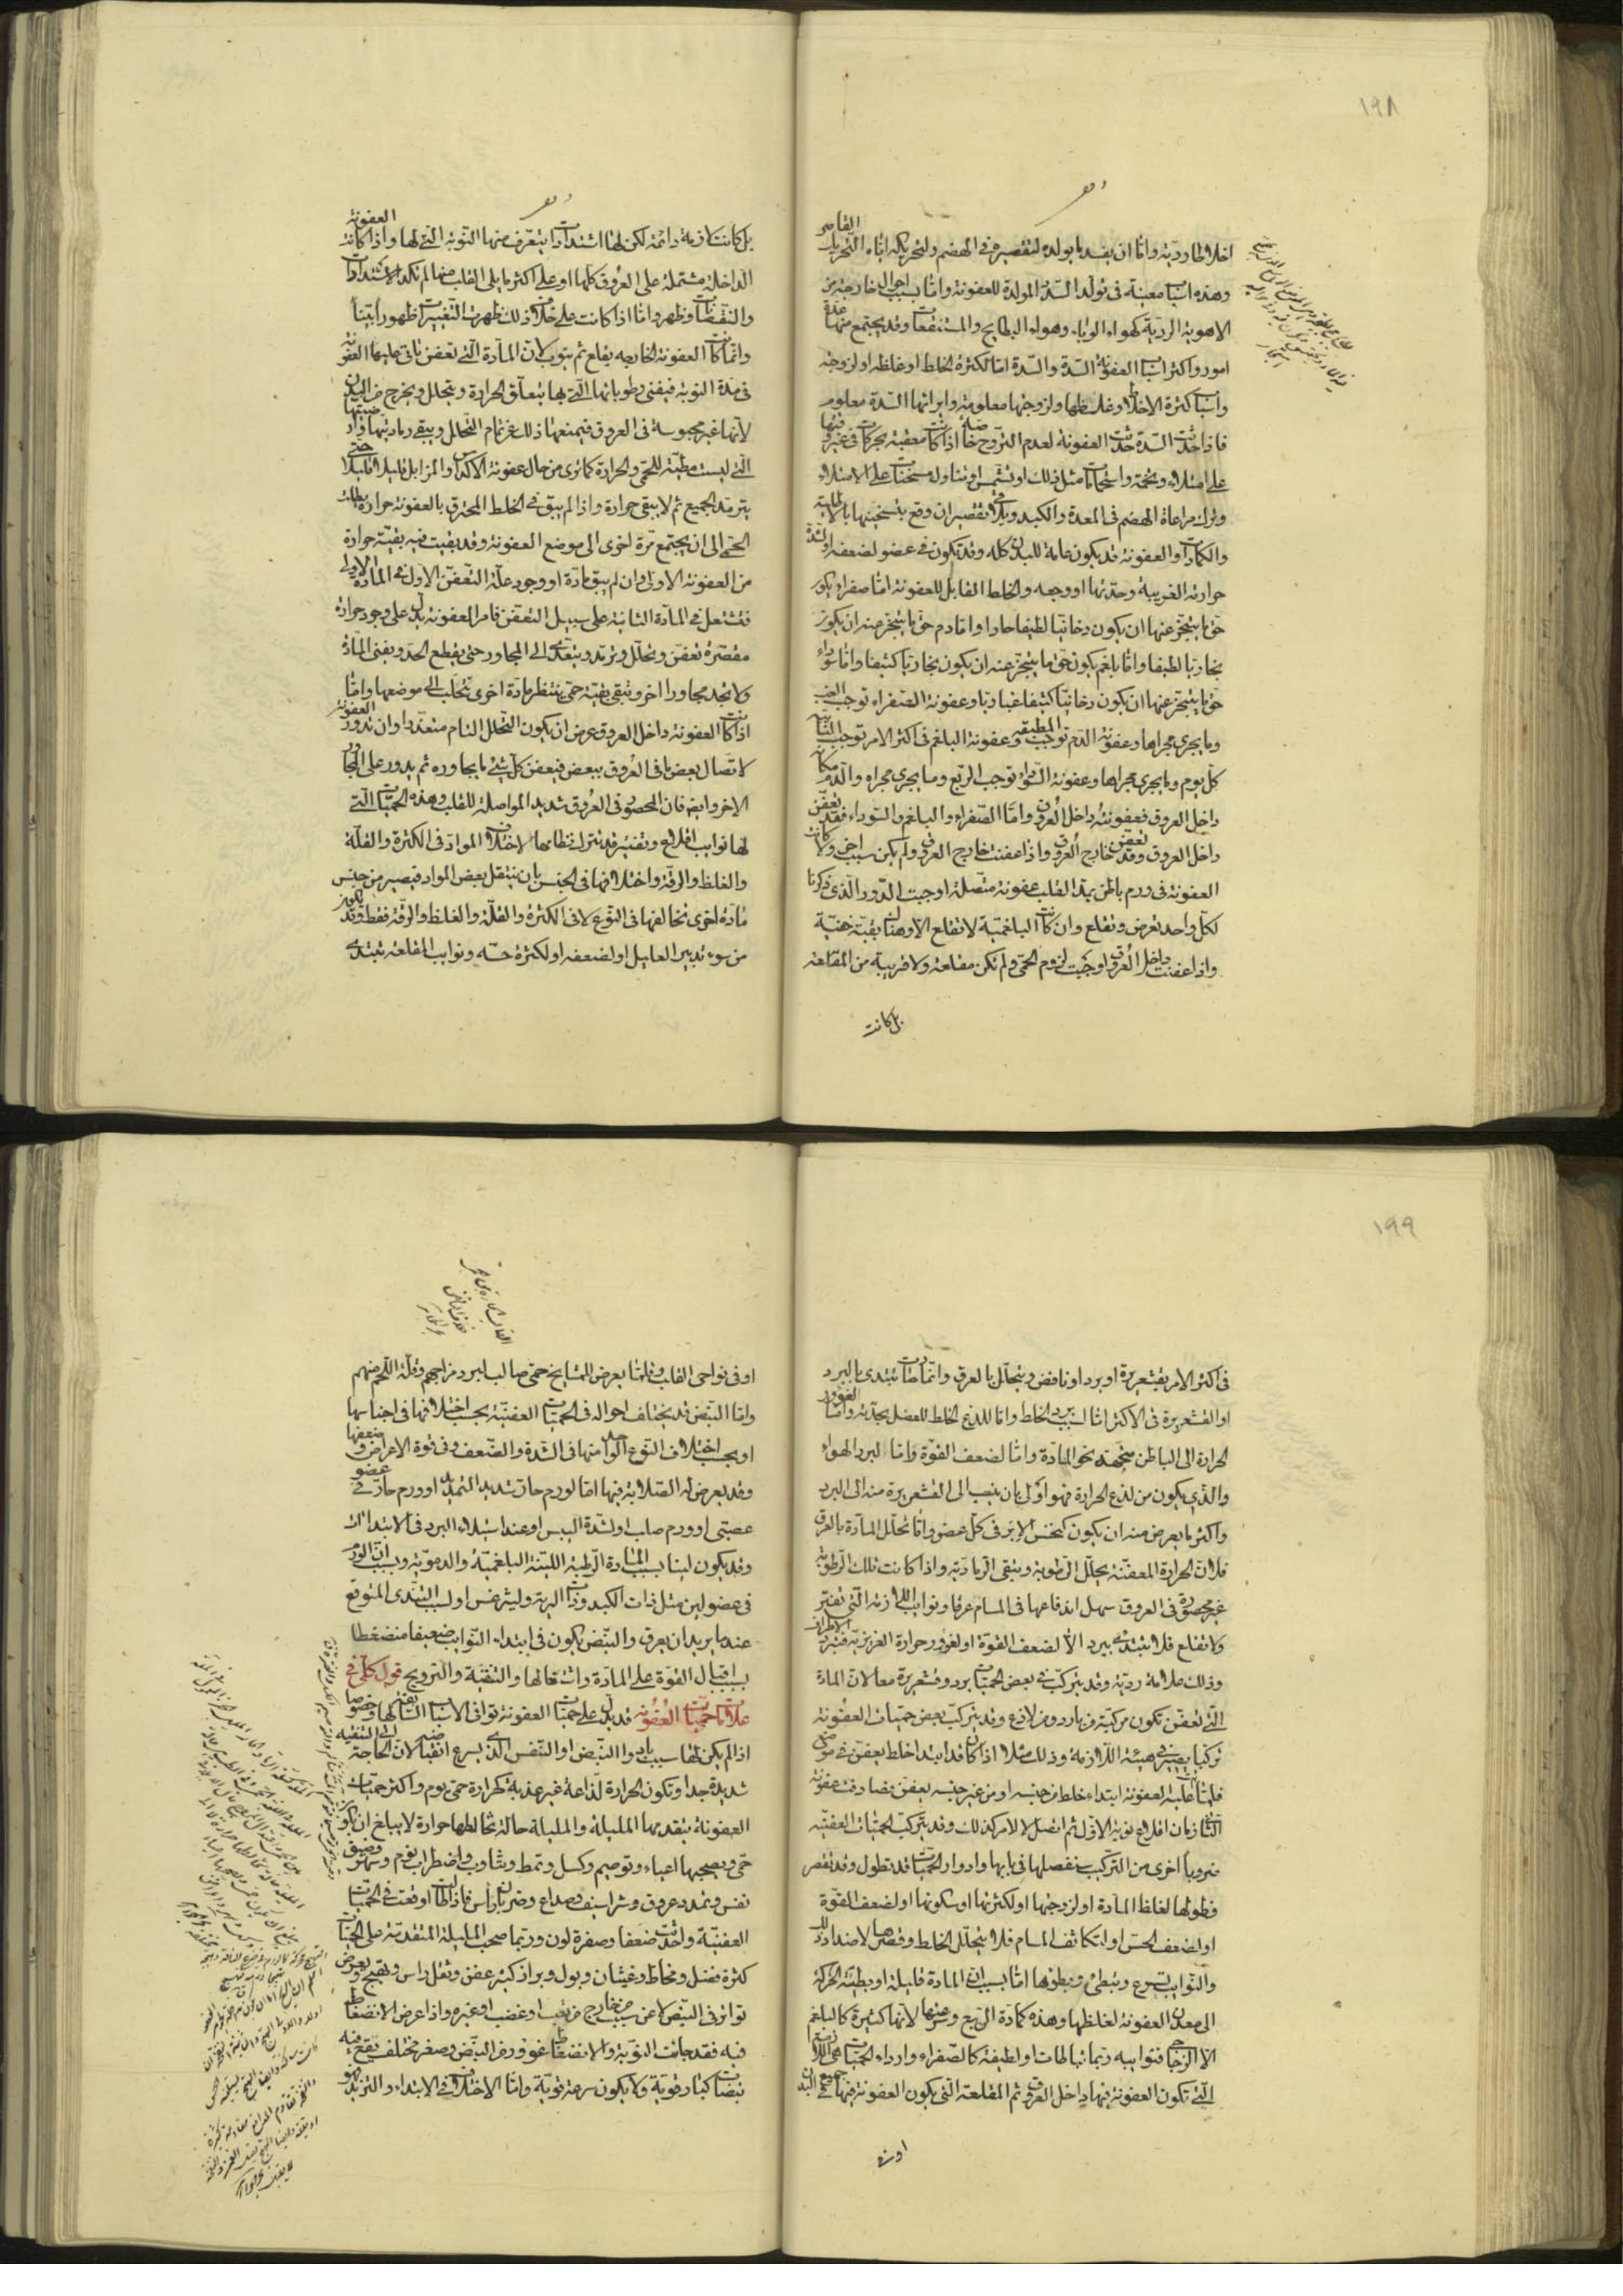 ١٩٨
اخلاطا رديّة وامّا ان يفسد ما يولده لتقصيره في الهضم ولتحريكه اياه التحريك القاصر
وهذه اسباب معينة في تولد السدد المولدة للعفونة وامّا بسبب احوال خارجة من
الاهوية الرديّة كهواء الوباء وهواء البطايح والمستنقعات وقد يجتمع منها عدة
امور واكثر اسباب العفونة السدّة والسدّة امّا لكثرة الخلط او غلظه او لزوجته
واسباب كثرة الاخلاط وغلظها ولزوجتها معلومة وايراثها السدّة معلوم
فاذا حدثت السدّة حدثت العفونة لعدم التروّح خاصة اذا كانت معقبة بحركات في غير وقتها
على امتلاء وتخمة واستحمامات مثل ذلك او تشمس او تناول مسخنات على الامتلاء
وترك مراعاة الهضم في المعدة والكبد وتلافي تقصير ان وقع بتسخينها بالاطلية
والكمادات والعفونة قد يكون عامة للبدن كله وقد يكون في عضو لضعفه او لشدة
حرارته الغريبة وحدتها او وجعه والخلط القابل للعفونة امّا صفراء يكون
حق ما يتبخر عنها ان يكون دخانيا لطيفا حادا وامّا دم حق ما يتبخر منه ان يكون
بخاريا لطيفا وامّا بلغم يكون حق ما يتبخر عنه ان يكون بخاريا كثيفا وامّا سوداء
حق ما يتبخر عنها ان يكون دخانيا كثيفا غباريا وعفونة الصفراء توجب الغب
وما يجري مجراها وعفونة الدم توجب المطبقة وعفونة البلغم في اكثر الامر توجب النائبة
كل يوم وما يجري مجراها وعفونة السوداء توجب الربع وما يجري مجراه والدم مكانه
داخل العروق فعفونته داخل العروق وامّا الصفراء والبلغم والسوداء فقد تعفن
داخل العروق وقد تعفن خارج العروق واذا عفنت خارج العروق ولم يكن سبب اخر ولا كانت
العفونة في ورم باطن يمد القلب عفونة متصلة اوجبت الدور الذي ذكرنا
لكل واحد تعرض وتقلع وان كانت البلغمية لا تقلع الا وهناك بقية خفية
واذا عفنت داخل العروق اوجبت لزوم الحمى ولم تكن مقلعة ولا قريبة من المقلعة
بل كانت
بل كانت لازمة دائمة لكن لها اشتدادات يتعرف منها النوبة التي لها واذا كانت العفونة
الداخلة مشتملة على العروق كلها او على اكثر ما يلي القلب منها لم تكد الاشتدادات
والنقصانات تظهر وامّا اذا كانت على خلاف ذلك ظهرت التغيرات ظهورا بيّنا
وانّما كانت العفونة الخارجة يقلع ثم ينوب لان المادّة التي تعفن تاتي عليها العفونة
في مدة النوبة فيفنى رطوباتها التي بها يتعلق الحرارة ويتحلل ويخرج من البدن
لانها غير محبوسة في العروق فيمنعها ذلك عن تمام التحلل ويبقى رماديتها وارضيتها
التي ليست مطيّة للحمى والحرارة كما ترى من حال عفونة الاكداس والمزابل قليلا قليلا حتى
يترمد الجميع ثم لا يبقى حرارة واذا لم يبق في الخلط المحترق بالعفونة حرارة بطلت
الحمى الى ان يجتمع مرة اخرى الى موضع العفونة وقد بقيت فيه بقية حرارة
من العفونة الاولى وان لم يبق مادة او وجود علة التعفن الاول في المادة الاولى
فتشتعل في المادة الثانية على سبيل التعفن فامر العفونة يدل على وجود حرارة
مقصرة تعفن وتحلل وترمد ويتعدى الى المجاور حتى يقطع الحد ويفنى المادة
ولا تجد مجاورا اخر وتبقى بقية حمى ينتظر مادة اخرى تتحلب الى موضعها وامّا
اذا كانت العفونة داخل العروق عرض ان يكون التحلل التام متعذرا وان تدور العفونة
لاتصال بعض ما في العروق ببعض فيعفن كل شيء ما يجاوره ثم يدور على المجاور
الاخر وايضا فان المحصور في العروق شديد المواصلة للقلب وهذه الحميات التي
لها نوايب اقلاع وتفتير قد تترك نظامها لاختلاف المواد في الكثرة والقلة
والغلظ والرقة واختلافها في الجنس بان ينتقل بعض المواد فيصير من جنس
مادة اخرى تخالفها في النوع لا في الكثرة والقلة والغلظ والرقة فقط وقد يكون
من سوء تدبير العليل او لضعفه او لكثرة حسه ونوايب المقلعة تبتدي
١٩٩
في اكثر الامر بقشعريرة او برد او نافض ويتحلل بالعرق وانّما صارت تبتدي بالبرد
او القشعريرة في الاكثر امّا لسبب برد الخلط وامّا للذع الخلط للعضل بحدته وامّا لغور
الحرارة الى الباطن متجهة نحو المادة وامّا لضعف القوة وامّا لبرد الهواء
والذي يكون من لذع الحرارة فهو اولى بان ينسب الى القشعريرة منه الى البرد
واكثر ما يعرض منه ان يكون كنخس الابر في كل عضو وامّا تحلل المادة بالعرق
فلان الحرارة المعفنة يحلل الرطوبة ويبقى الرمادية واذا كانت تلك الرطوبة
غير محصورة في العروق سهل اندفاعها في المسام عرقا ونوايب اللازمة التي تفتر
ولا تقلع فلا تبتدي ببرد الا لضعف القوة او لغور حرارة الغريزية فتبرد الاطراف
وذلك علامة ردية وقد يتركب في بعض الحميات برد وقشعريرة معا لان المادة
التي تعفن تكون مركبة من بارد ومن لاذع وقد يتركب بعض حميات العفونة
تركيبا يصير في هيئة اللازمة وذلك مثلا اذا كان قد ابتدا خلط يعفن في موضع
فلما غلبت العفونة ابتداء خلط من جنسه او من غير جنسه يعفن يصادفت عفونة
الثاني زمان اقلاع نوبة الاول ثم اتصل الامر كذلك وقد يتركب الحميات العفنية
ضروبا اخرى من التركيب نفصلها في بابها وادوار الحميات قد تطول وقد تقصر
فطولها لغلظ المادة او لزوجتها او لكثرتها او سكونها او لضعف القوة
او لضعف الحس او لتكاثف المسام فلا يتحلل الخلط وقصرها لاضداد ذلك
والنوايب تسرع وتبطئ وبطؤها امّا بسبب ان المادة قليلة او بطيئة الحركة
الى معدن العفونة لغلظها وهذه كمادة الربع وسرعتها لانها كثيرة كالبلغم
الا الزجاجي فنوايبه ربما تباطات او لطيفة كالصفراء واردا الحميات هي اللازمة
التي تكون العفونة فيها داخل العروق ثم المقلعة التي يكون العفونة فيها في جميع البدن
او في
او في نواحي القلب وقلّما يعرض للمشايخ حمى صالب لبرد مزاجهم وقلة اللحم منهم
وامّا النبض قد يختلف احواله في الحميات العفنية بحسب اختلافها في اجناسها
او بحسب اختلاف النوع الواحد منها في الشدة والضعف وفي قوة الاعراض وضعفها
وقد يعرض له الصلابة فيها امّا لورم حار شديد التمديد او ورم حار في عضو
عصبي او ورم صلب او لشدة اليبس او عند استيلاء البرد في الابتداات
وقد يكون لينا بسبب المادة الرطبة اللينة البلغمية والدموية وبسبب ان الورم
في عضو لين مثل ذات الكبد وذات الرية وليثرغس او لسبب التندي المتوقع
عندما يريد ان يعرق والنبض يكون في ابتداء النوايب ضعيفا منضغطا
بسبب اقبال القوة على المادة واشتغالها والتنقية والترويح قول كلي في
علامات حميات العفونة قد يدل على حميات العفونة توافي الاسباب السابقة لها وخصوصا
اذا لم يكن لها سبب باد والنبض او النفس الذي يسرع انقباضه لان الحاجة الى التنقية
شديدة جدا وتكون الحرارة لذاعة غير عذبة كحرارة حمى يوم واكثر حميات
العفونة يتقدمها المليلة والمليلة حالة تخالطها حرارة لا يبلغ ان يكون
حمى ويصحبها اعياء وتوصيم وكسل وتمط وتثاوب واضطراب نوم وسهر وضيق
نفس وتمدد عروق وشراسيف وصداع وضربان راس فاذا طالت اوقعت في الحميات
العفنية واحدثت ضعفا وصفرة لون وربما صحب المليلة المتقدمة على الحميات
كثرة فضل ومخاط وغثيان وبول وبراز كثير عفن وثقل راس وتهيج وتعرض
تواتر في النبض لا عن سبب من خارج من تعب او غضب او غيره واذا عرض الانضغاط
فيه فقد جاءت النوبة والانضغاط غور من النبض وصغر مختلف يقع فيه
نبضات كبار وقوية ولا يكون سرعة قوية وامّا الاختلاف في الابتداء والتزيد فهو